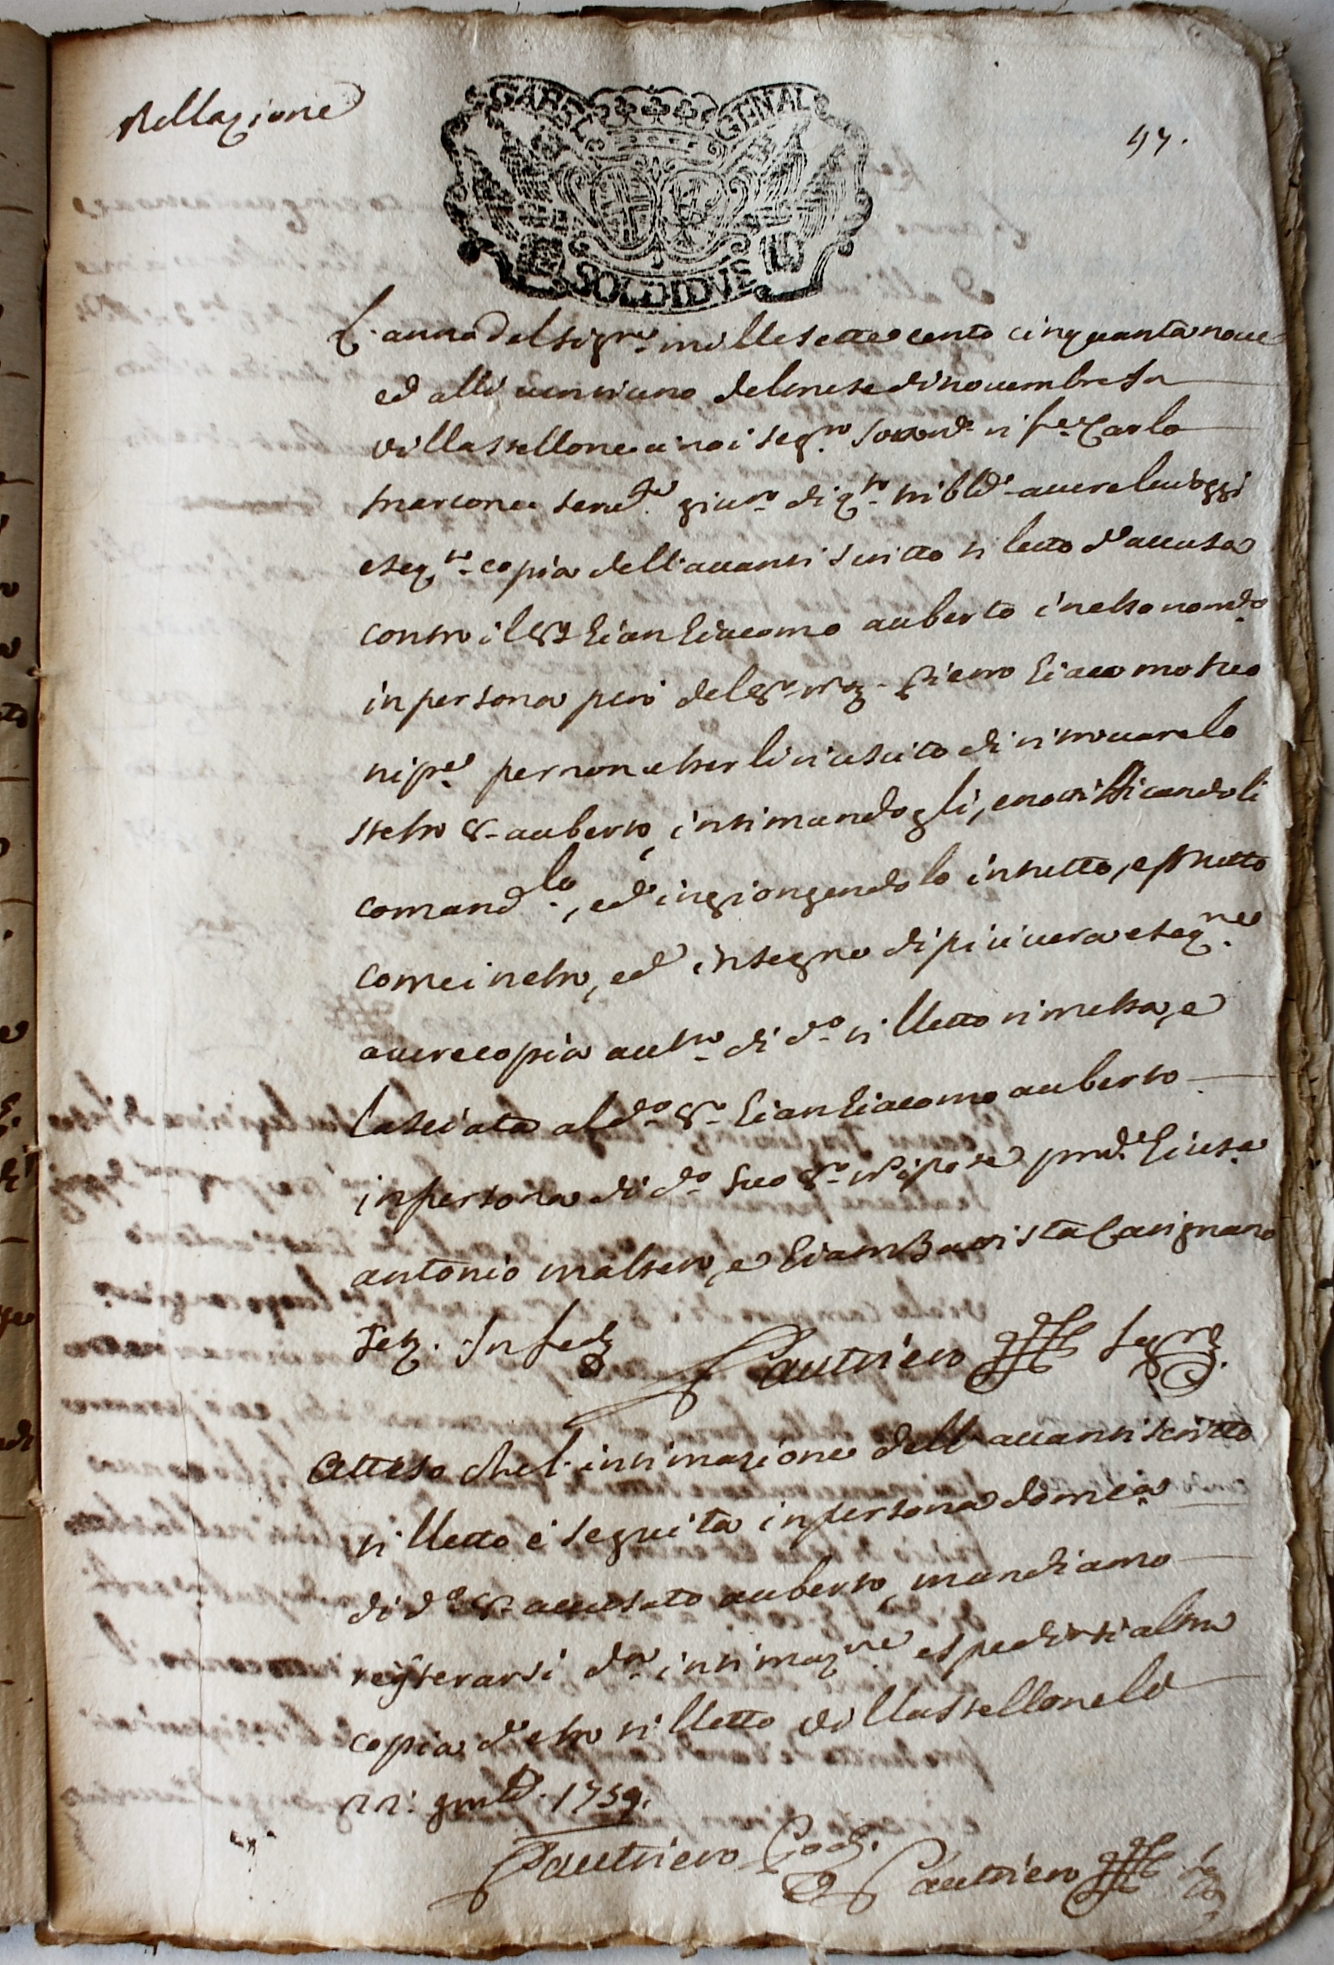 Rellazione
97.
GABEL. GENAL.
SOLDI DVE
L'anno del sigre. mille sette cento cinquanta noue
ed alli uentiuno del mese di nouembre In
Villastellone a noi segro. sotto. Carlo
Marcone giuro. di qto. auere lui oggi
copia dell'auanti scritto billetto d'accusa
contro il Sr. Gian Giacomo auberto in esso nomdo.
in persona però del Sr. Pietro Giacomo suo
nipe. per non esserli riuscito di ritrouare lo
stesso Sr. auberto, intimandogli, e notifficandoli
comandlo., ed ingiongendolo in tutto, e p tutto
come in esso, ed in segno di più uera esegne.
auere copia auta. di do. billetto rimessa, e
lasciata al do. Sr. Gian Giacomo auberto
in persona di do. suo Sr. Nipote Giuse.
antonio, e Giam Batista Carignano
Tez. In fede Gautiero Segro.
Atteso che l'intimazione dell'auanti scritto
billetto è seguita in persona domca.
di do. Sr. accusato auberto, mandiamo
regisrarsi da. intimazne. e spedirsi altra
copia d'esso billetto Villastellone li
22: 9mbre. 1759.
Gautiero Gautiero